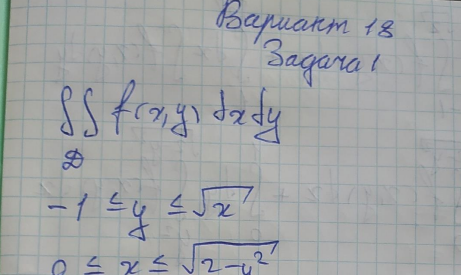 Вариант 18
Задача 1
∬ f(x,y) dxdy
D
-1 ≤ y ≤ √x
0 ≤ x ≤ √(2-y²)